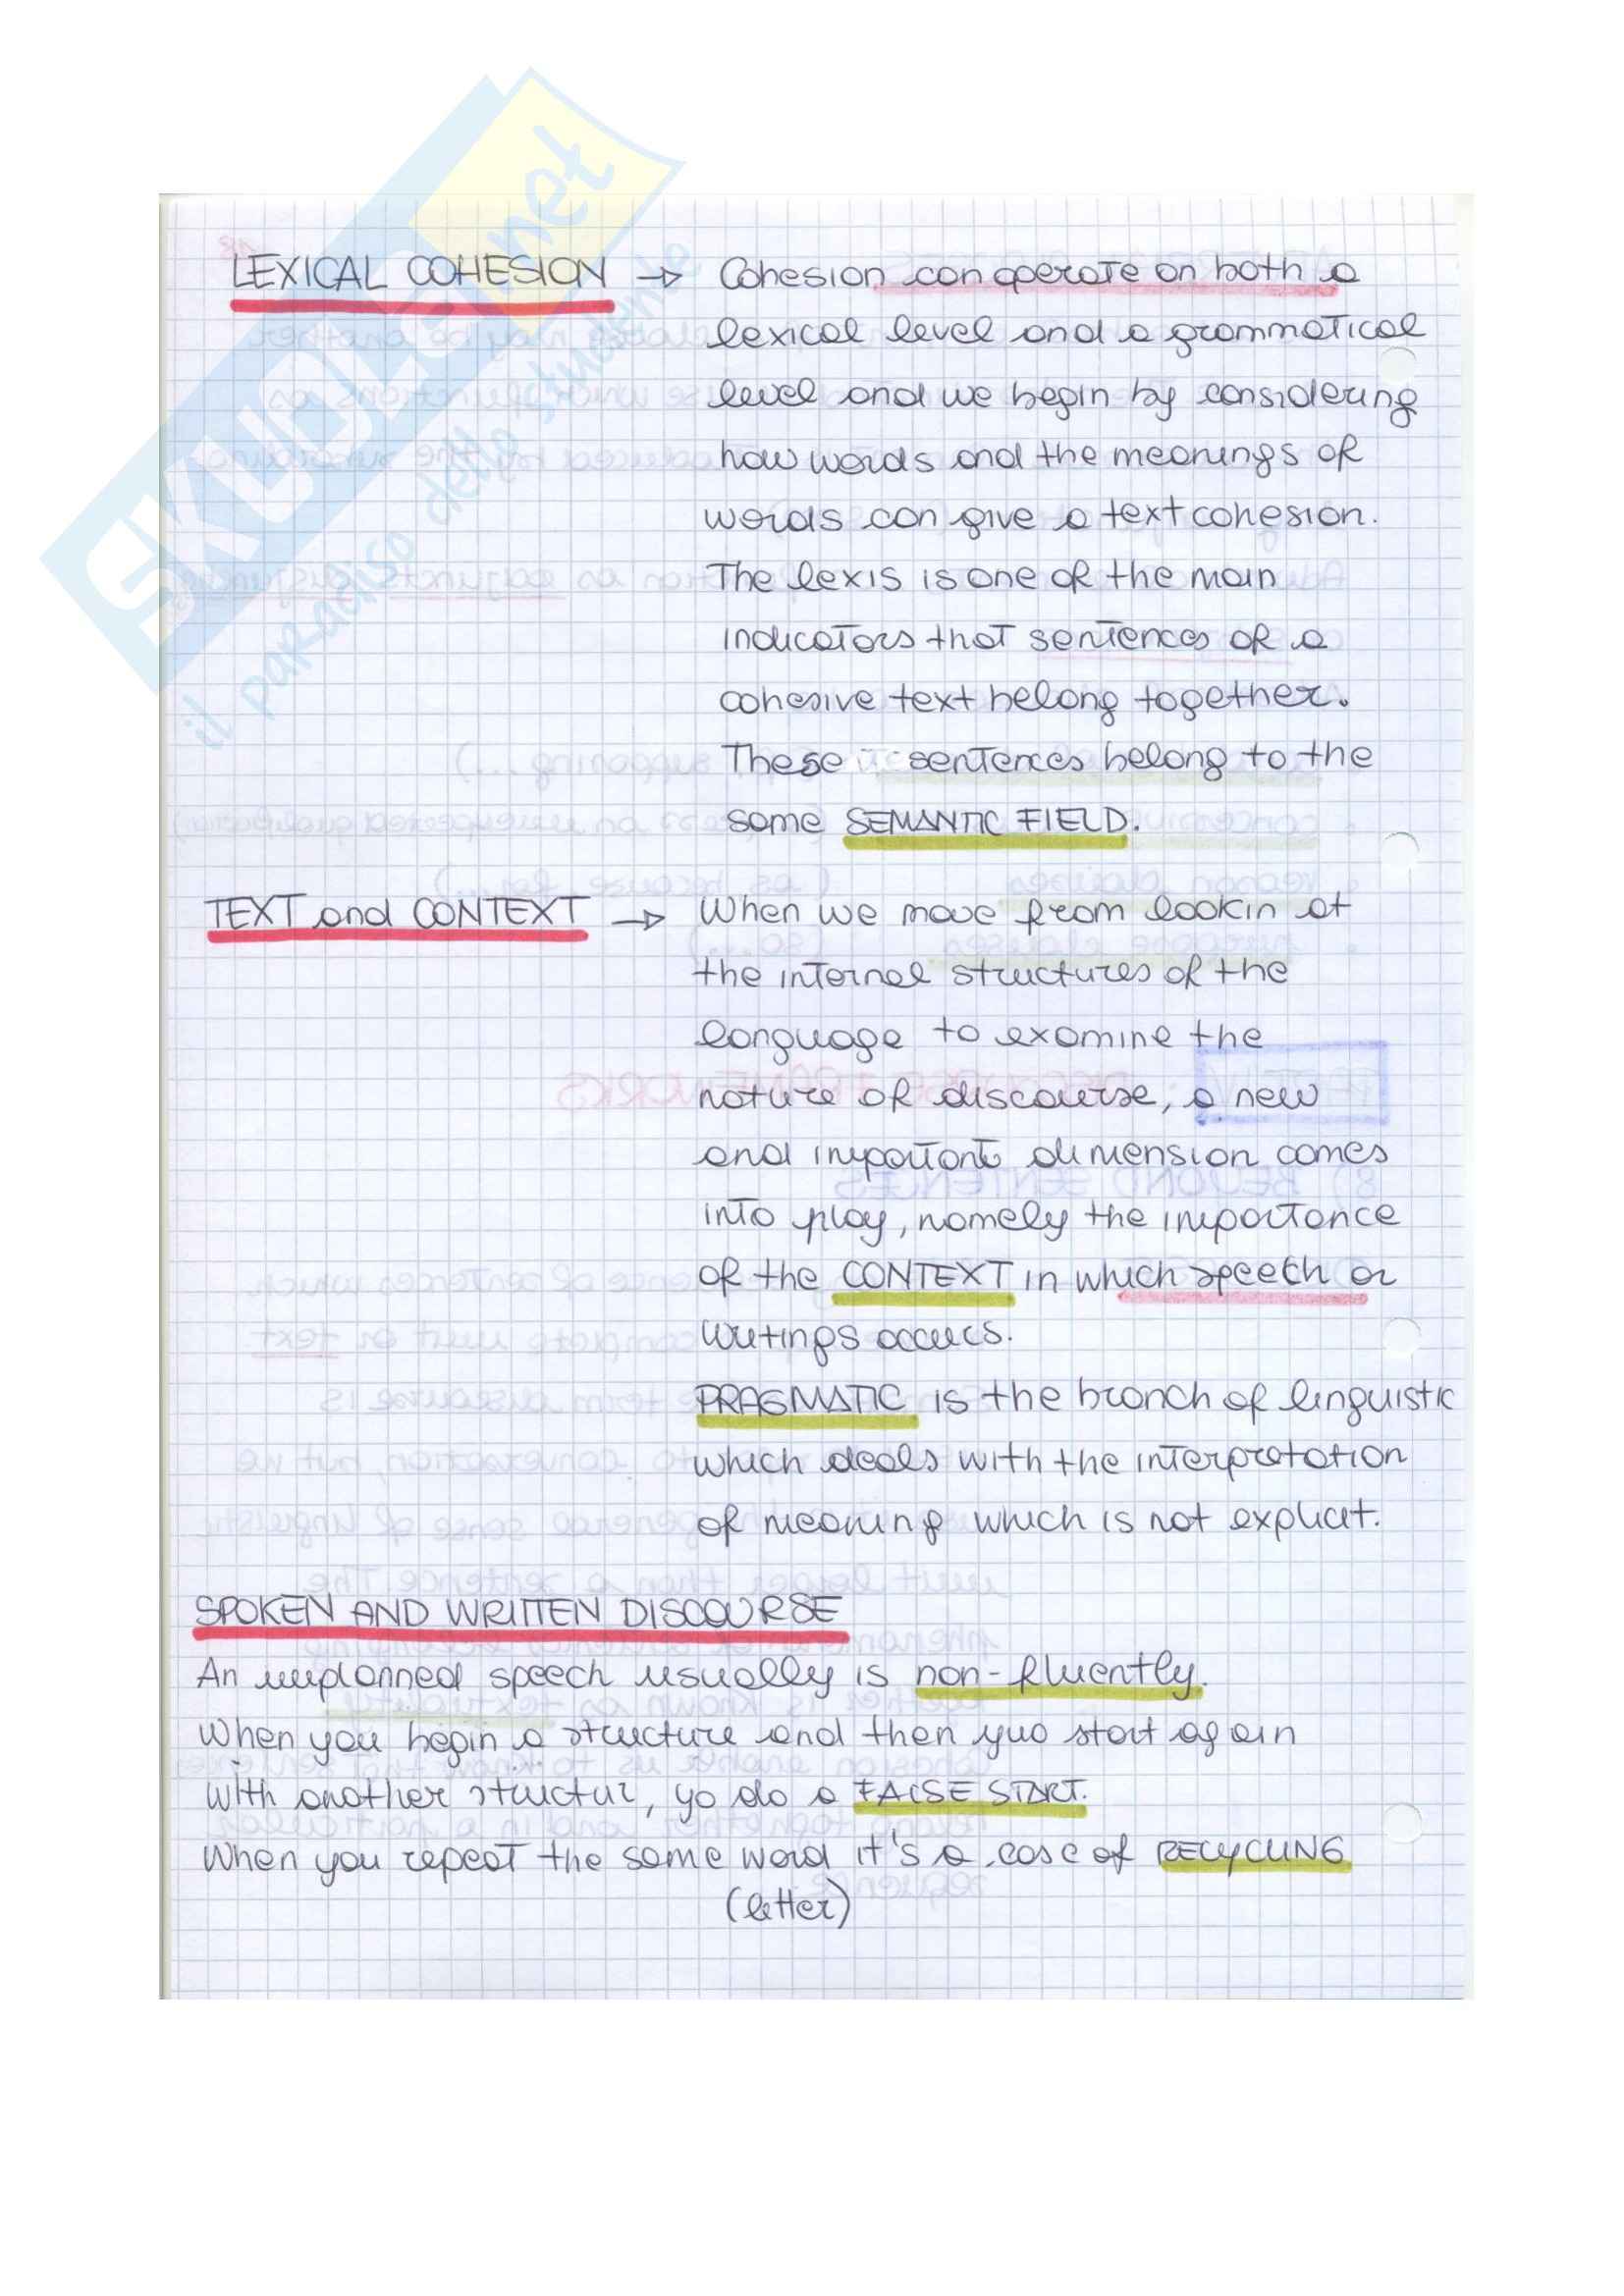 SKUOLA.net
il paradiso dello studente
LEXICAL COHESION → Cohesion can operate on both a
lexical level and a grammatical
level and we begin by considering
how words and the meanings of
words can give a text cohesion.
The lexis is one of the main
indicators that sentences of a
cohesive text belong together.
These sentences belong to the
same SEMANTIC FIELD.
TEXT and CONTEXT → When we move from lookin at
the internal structures of the
language to examine the
nature of discourse, a new
and important dimension comes
into play, namely the importance
of the CONTEXT in which speech or
writings occurs.
PRAGMATIC is the branch of linguistic
which deals with the interpretation
of meaning which is not explicit.
SPOKEN AND WRITTEN DISCOURSE
An unplanned speech usually is non-fluently.
When you begin a structure and then yuo start again
with another structur, yo do a FALSE START.
When you repeat the same word it's a case of RECYCLING
(letter)